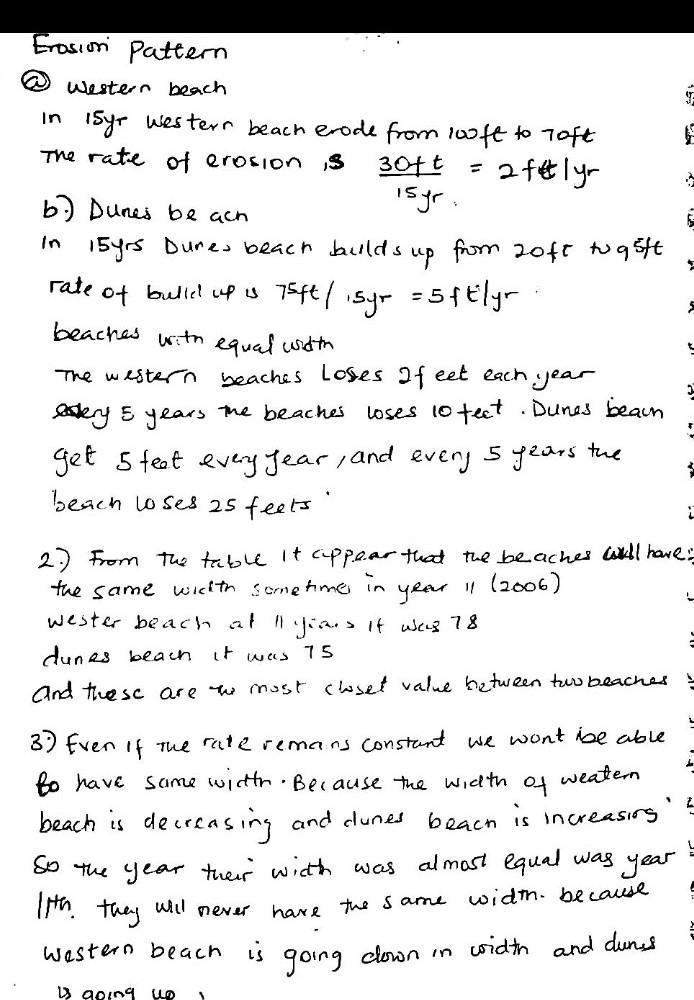 Erosion Pattern
ⓐ western beach
In 15yr western beach erode from 100ft to 70ft
The rate of erosion is 30ft / 15yr. = 2ft/yr
b.) Dunes beach
In 15yrs Dunes beach builds up from 20ft to 95ft
rate of build up is 75ft/15yr = 5ft/yr.
beaches with equal width
The western beaches Loses 2feet each year
every 5 years the beaches loses 10 feet. Dunes beach
get 5 feet every year, and every 5 years the
beach loses 25 feets.
2.) From the table it appear that the beaches will have
the same width sometimes in year 11 (2006)
wester beach at 11 years it was 78
dunes beach it was 75
and these are the most closet value between two beaches
3.) Even if the rate remains constant we wont be able
to have same width. Because the width of western
beach is decreasing and dunes beach is increasing.
So the year their width was almost equal was year
11th. They will never have the same width. because
western beach is going down in width and dunes
is going up.